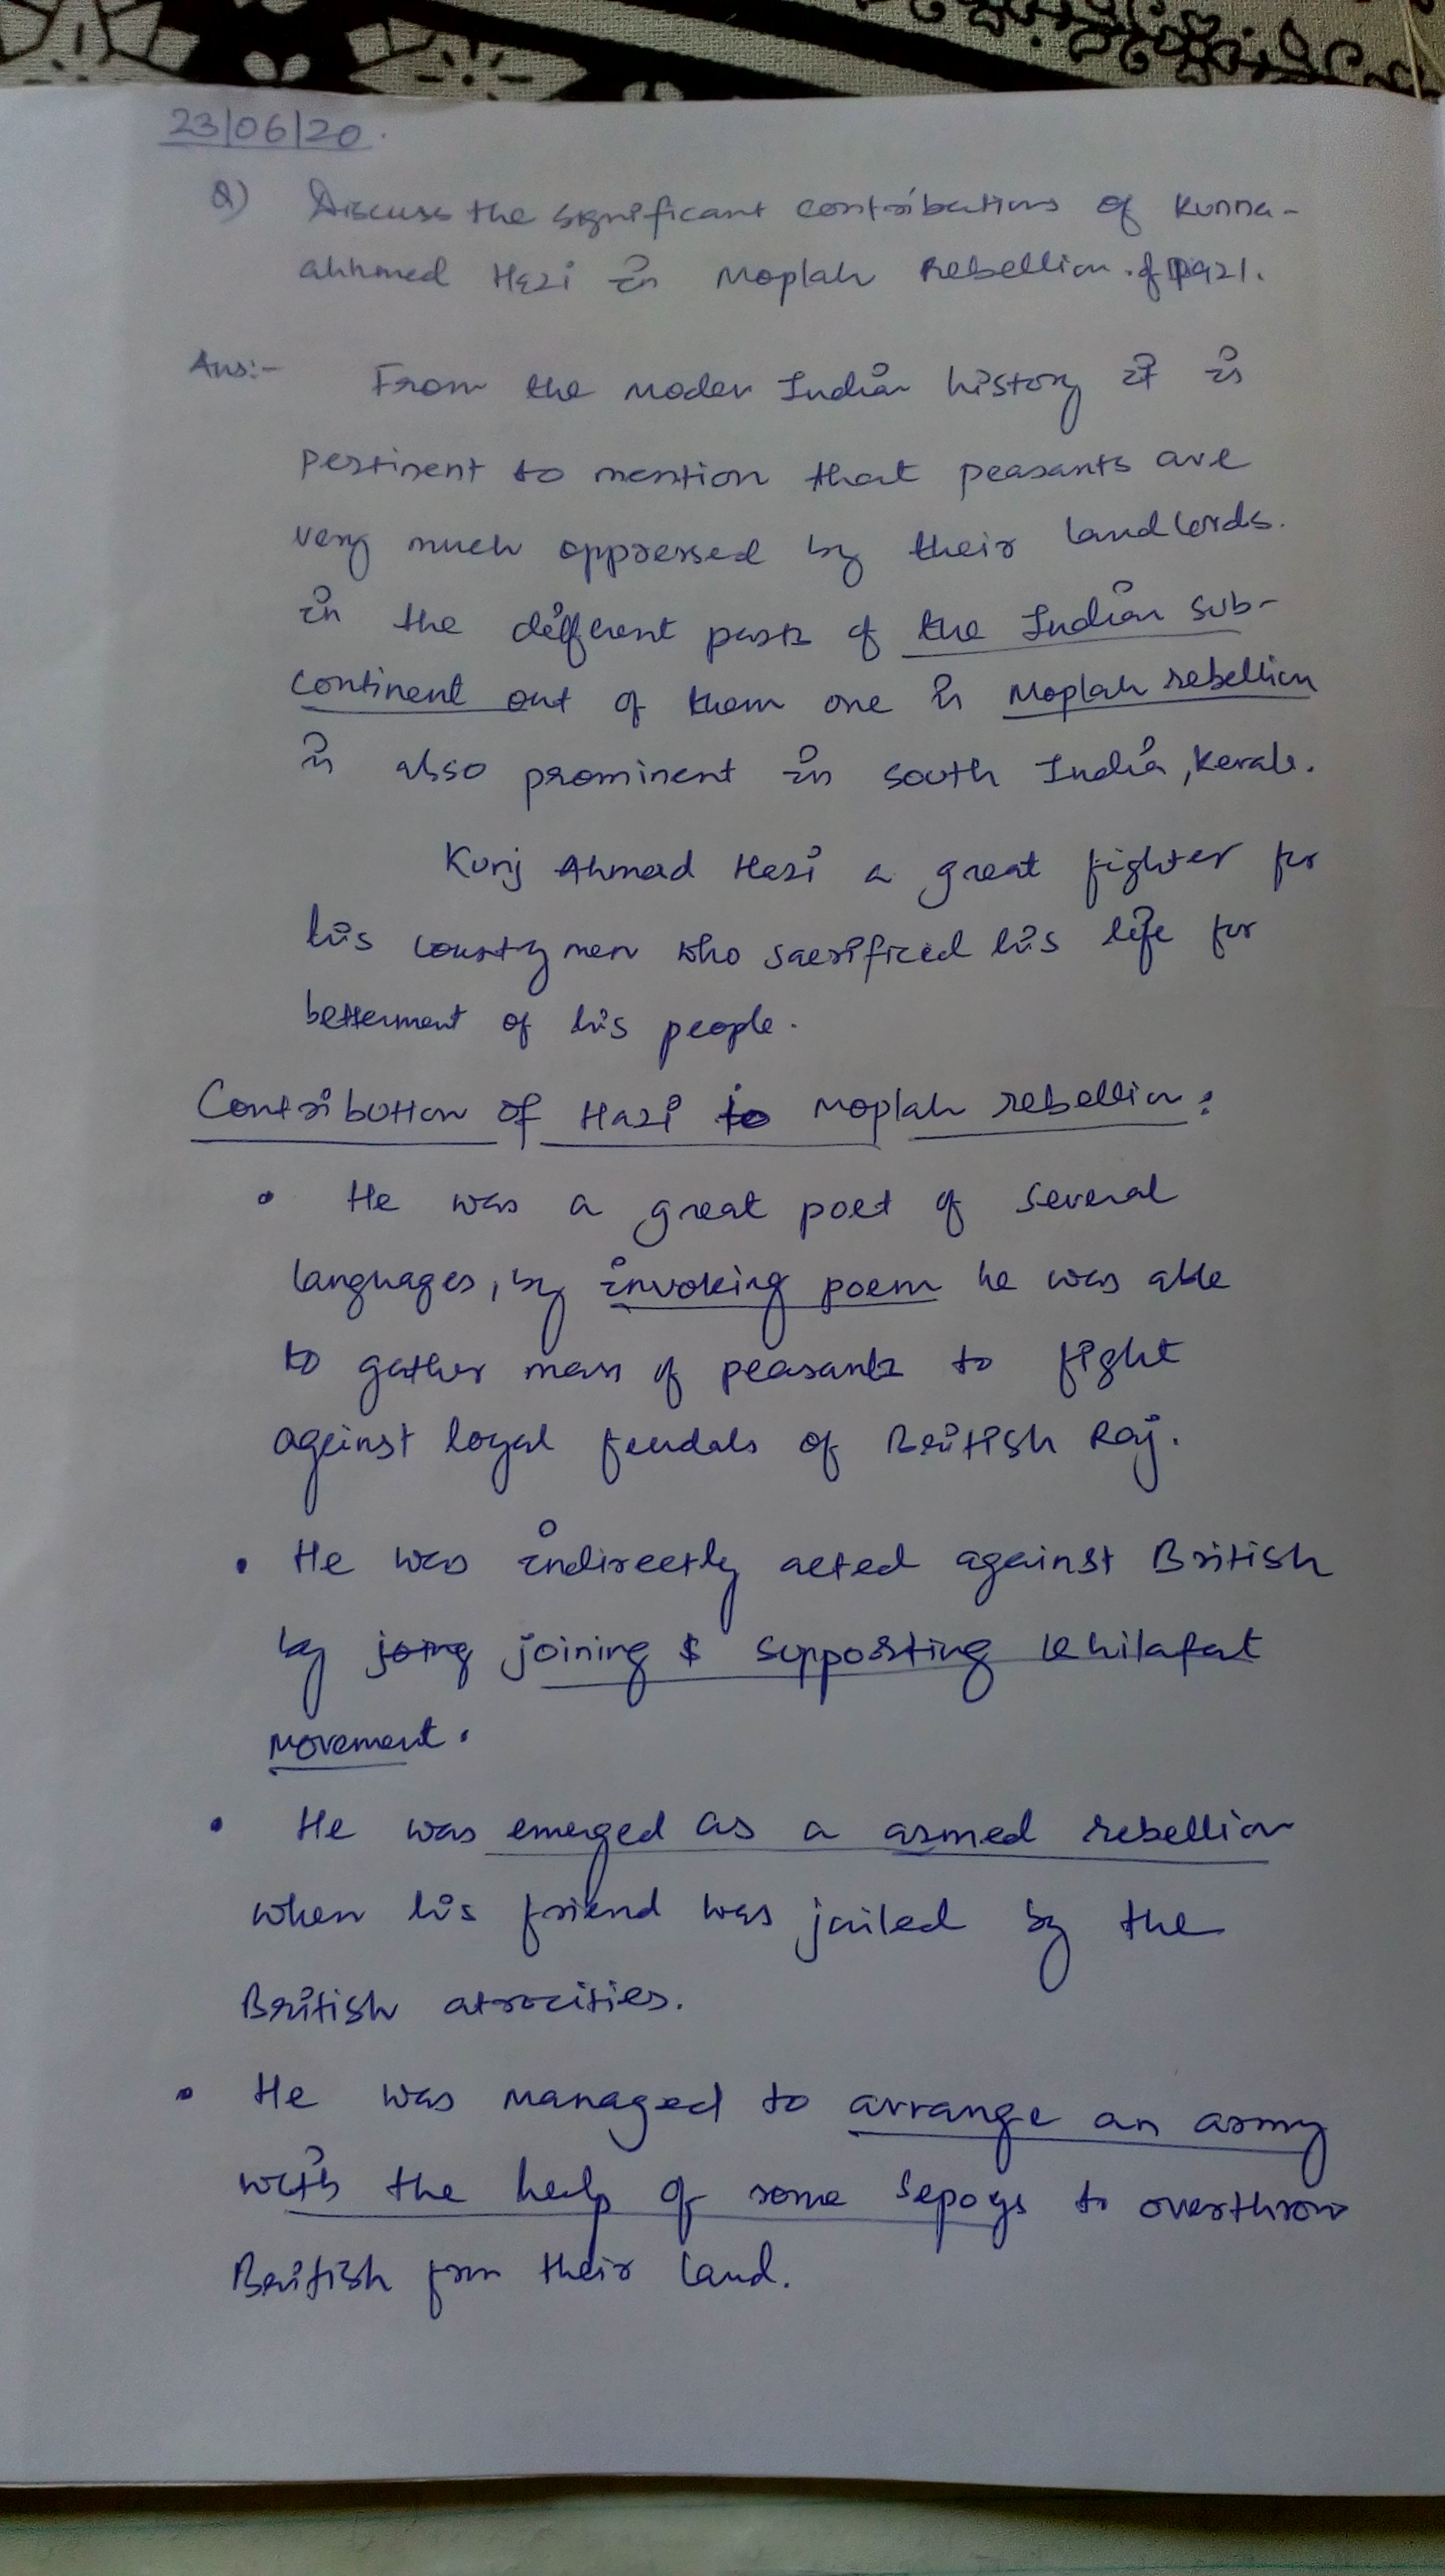 23/06/20.
Q) Discuss the significant contributions of Kunna-
ahhmed Hazi in Moplah Rebellion of 1921.
Ans:- From the moder Indian history it is
pertinent to mention that peasants are
very much oppressed by their landlords.
in the different parts of the Indian sub-
continent out of them one is Moplah rebellion
is also prominent in south India, Kerala.
Kunj Ahmad Hazi a great fighter for
his countrymen who sacrificed his life for
betterment of his people.
Contribution of Hazi to Moplah rebellion:
• He was a great poet of several
languages, by invoking poem he was able
to gather mass of peasants to fight
against loyal feudals of British Raj.
• He was indirectly acted against British
by joing joining & supporting Khilafat
movement.
• He was emerged as a armed rebellion
when his friend was jailed by the
British atrocities.
• He was managed to arrange an army
with the help of some sepoys to overthrow
British from their land.